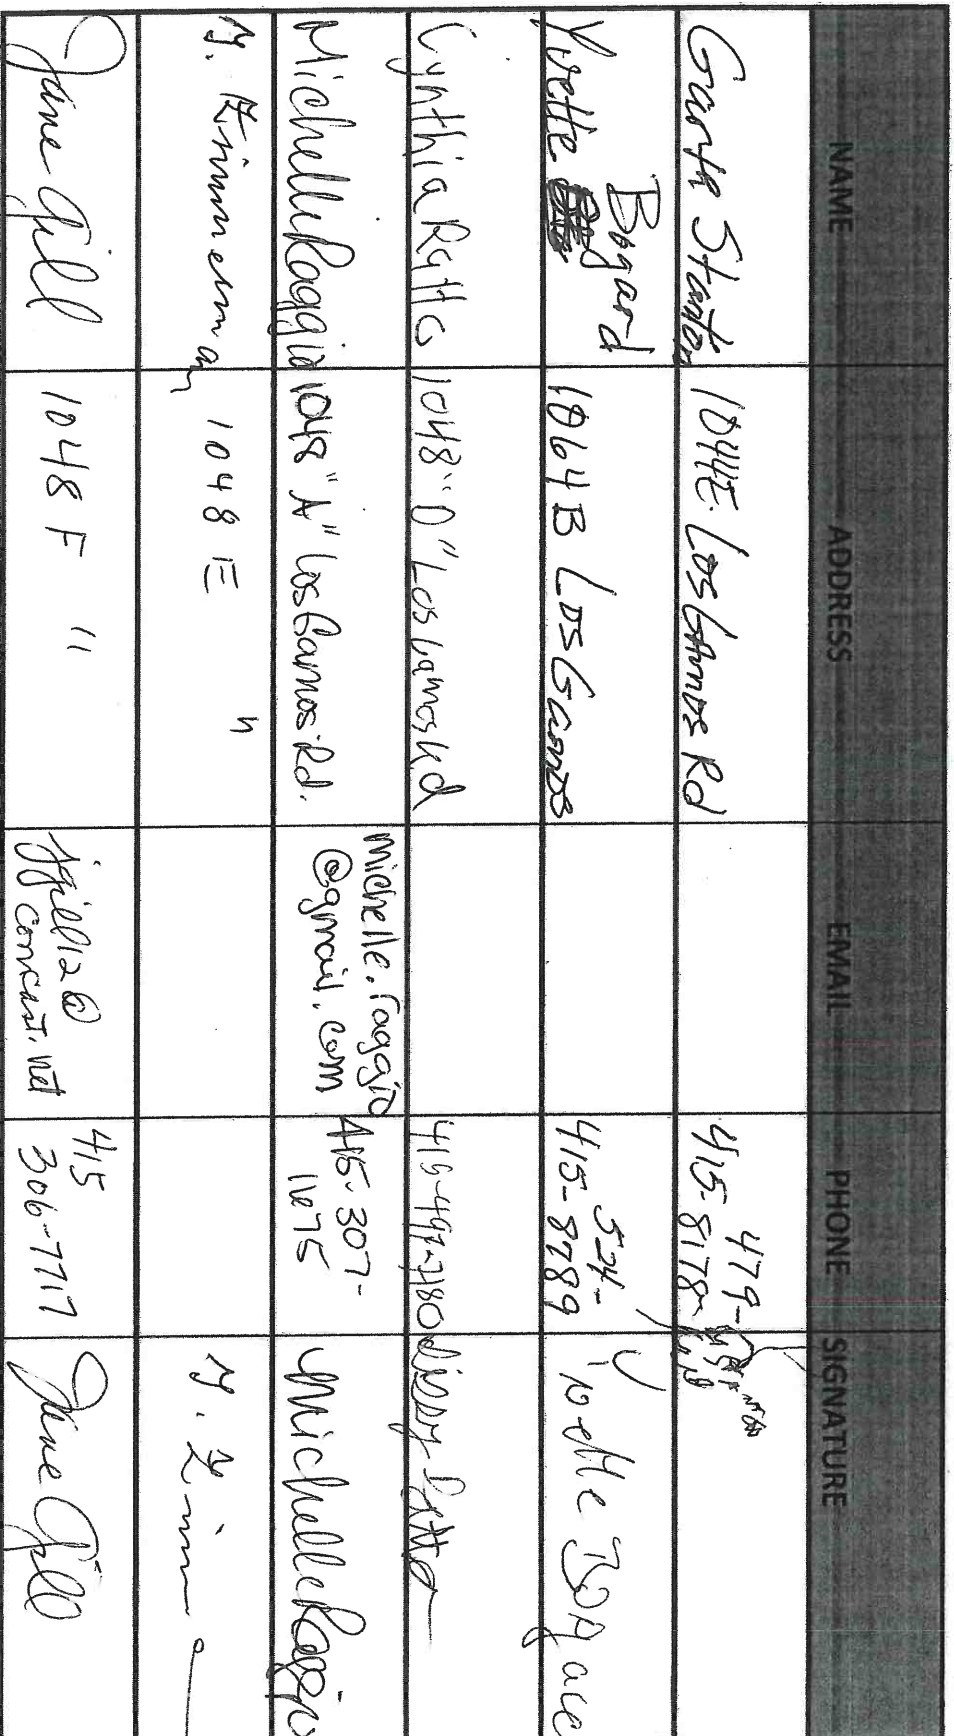 NAME ADDRESS EMAIL PHONE SIGNATURE
Garth Stanton 1044E. Los Gamos Rd 479-
415-8178
Bogard
Yvette 1064 B Los Gamos 524-
415-8789 Yvette Bogard
Cynthia Ratto 1048 "D" Los Gamos Rd 415-497-2180
Michelle Raggio 1048 "A" Los Gamos Rd. michelle.raggio 415-307-
@gmail.com 1675 Michelle Raggio
M. Zimmerman 1048 E " M. Zimm
Jane Gill 1048 F " jgill12@ 415
comcast.net 306-7717 Jane Gill